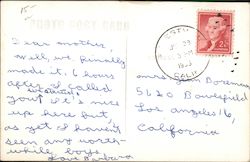 15¢
PHOTO POST CARD
Dear mother,
Well, we finally
made it. 6 hours
after I called
you. It's nice
up here but
as yet I haven't
seen any worth-
while boys
Love Barbara
CALIF.
2¢
Mrs. Bozeman
5620 Bowesfield
Los Angeles 16,
California